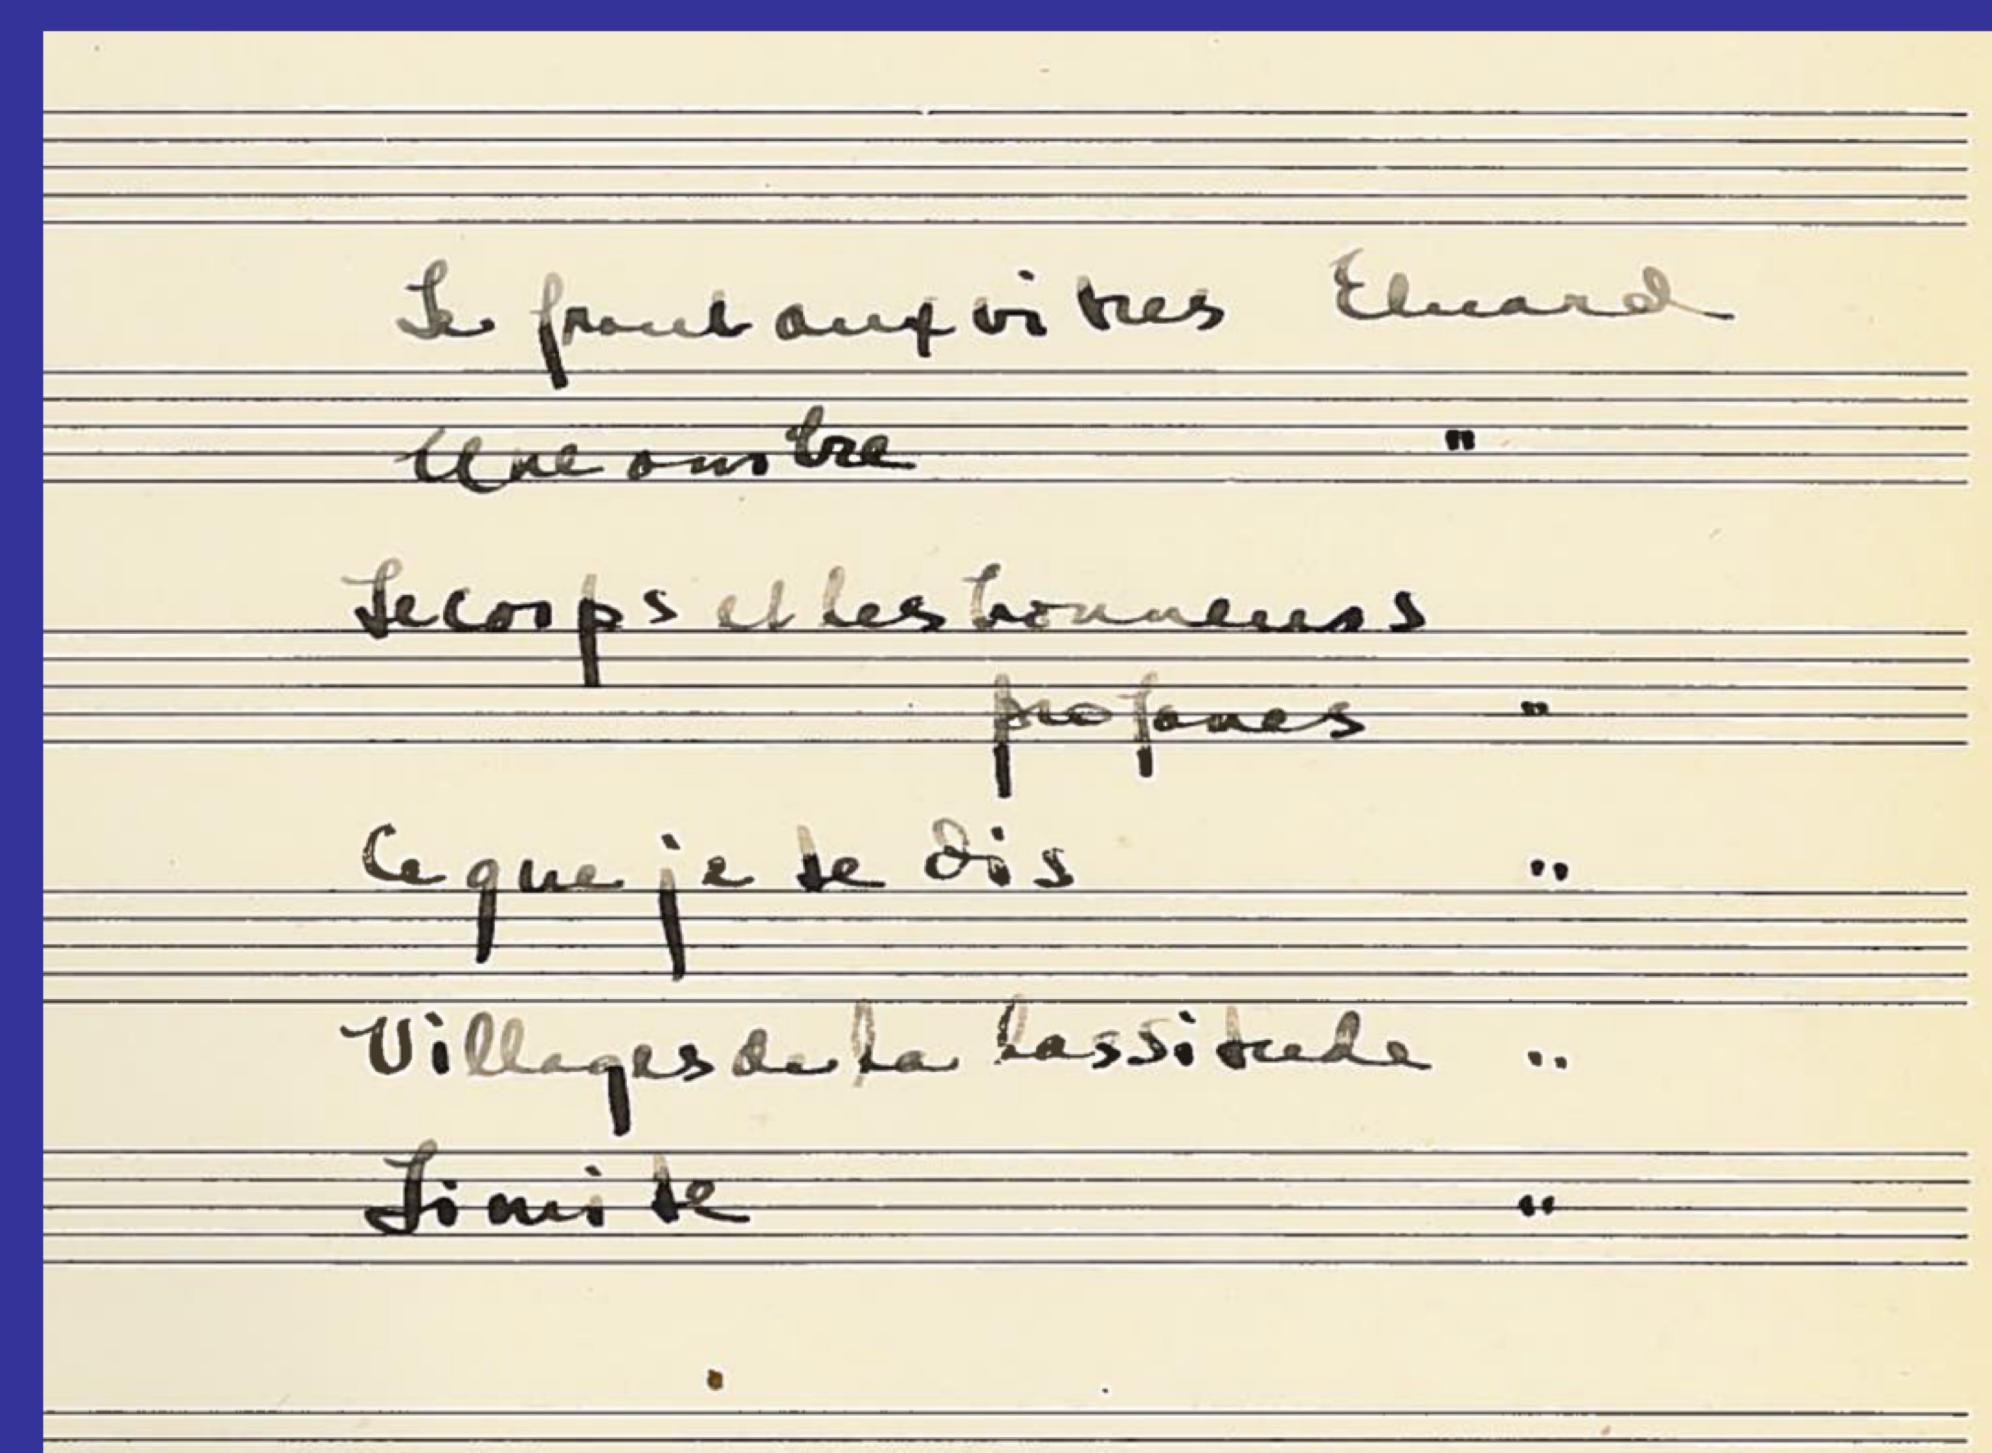 Le front aux vitres Eluard
Une ombre "
Le corps et les honneurs
profanes "
Ce que je te dis "
Villages de la lassitude "
Limite "